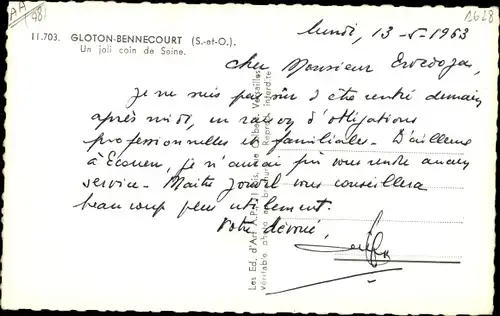 AA
(98)
1628
11.703. GLOTON-BENNECOURT (S.-et-O.).
Un joli coin de Seine.
lundi, 13-5-1963
Cher Monsieur
Je ne suis pas sûr d'être rentré demain
après midi, en raison d'obligations
professionnelles et familiales. D'ailleurs
à Ecouen, je n'aurai pu vous rendre aucun
service. Maître vous conseillera
beaucoup plus utilement.
Votre dévoué,
Les Ed. d'Art A.P., rue Versailles
véritable photo au bromure Reprod. interdite